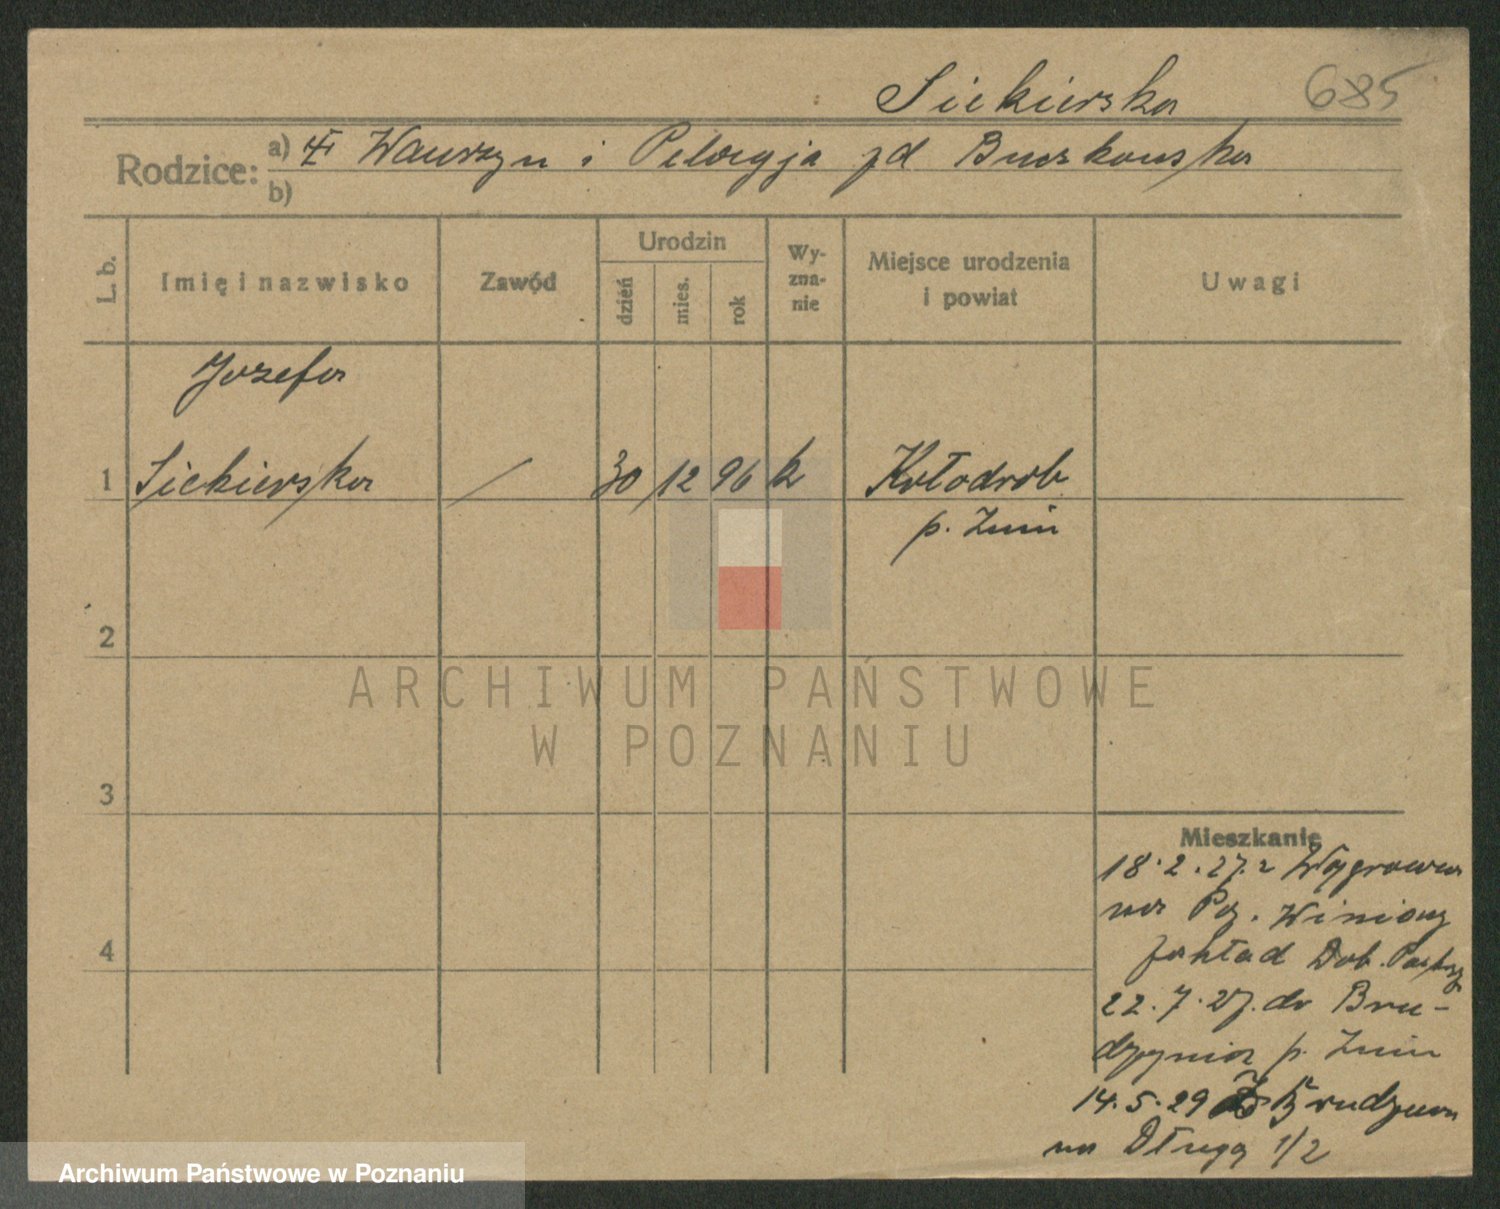 Siekierska 685
Rodzice: a) Wawrzyn i Pelagja zd Buczkowska
b)
L. b. Imię i nazwisko Zawód Urodzin dzień mies. rok Wy-zna-nie Miejsce urodzenia i powiat Uwagi
Jozefa
1 Siekierska / 30 12 96 k Kołodrob
p. Żnin
2
ARCHIWUM PAŃSTWOWE
W POZNANIU
3
Mieszkanie
18.2.27. z Wągrowca
na Winiary
4 zakład Dob. Past.
22.7.27. do Bru-
dzynia p. Żnin
14.5.29 Z Brudzynia
na Długą 1/2
Archiwum Państwowe w Poznaniu